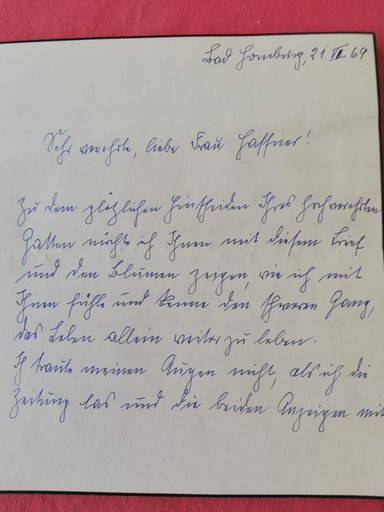 Bad Homburg, 21. VI. 69
Sehr verehrte, liebe Frau Haffner!
Zu dem plötzlichen Hinscheiden Ihres hochverehrten
Gatten möchte ich Ihnen mit diesem Brief
und den Blumen zeigen, wie ich mit
Ihnen fühle und kenne den schweren Gang,
das Leben allein weiter zu leben.
Ich traute meinen Augen nicht, als ich die
Zeitung las und die beiden Anzeigen mit